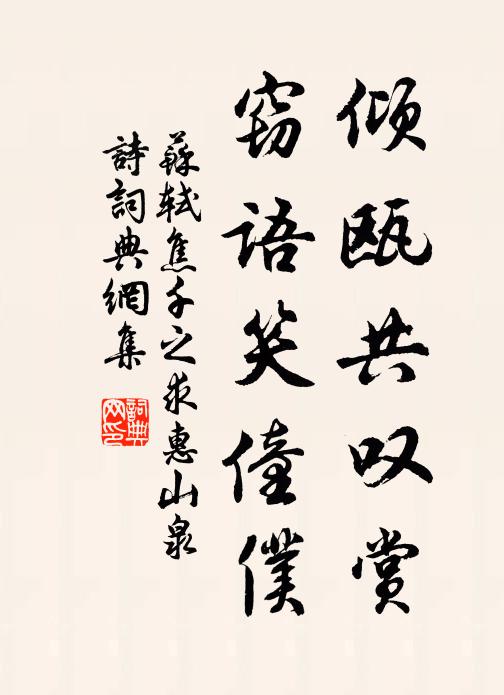 倾瓯共叹赏
窃语笑僮僕
蘇軾焦千之求惠山泉
詩詞典網集
詞典
网印